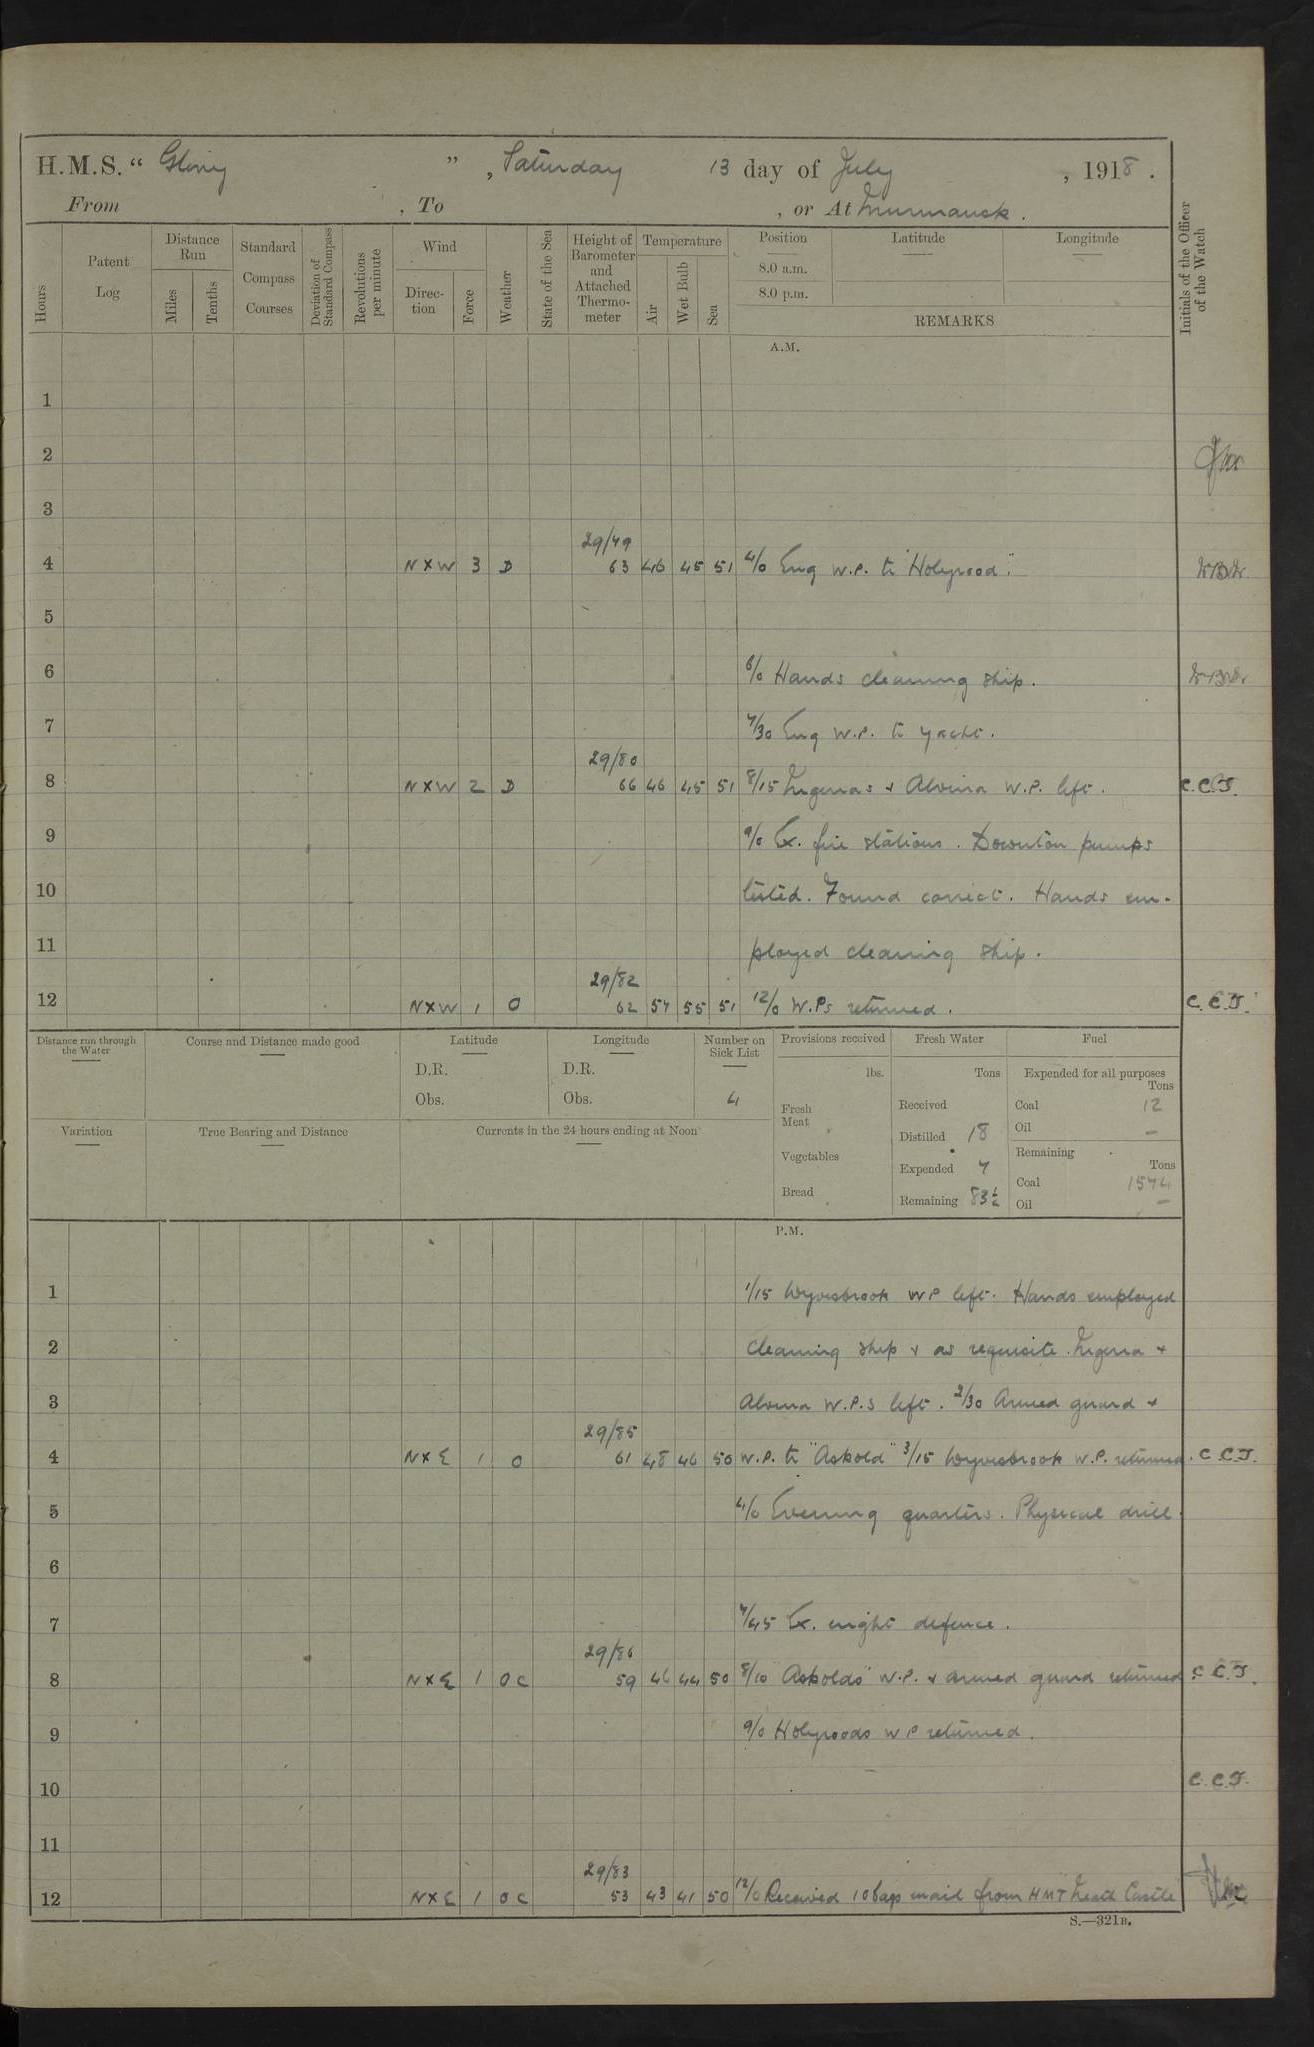 H.M.S. “ Glory ” , Saturday 13 day of July , 1918 .
From , To , or At Murmansk .
Hours
Patent Log
Distance Run
Miles
Tenths
Standard Compass Courses
Deviation of Standard Compass
Revolutions per minute
Wind
Direc- tion
Force
Weather
State of the Sea
Height of Barometer and Attached Thermo- meter
Temperature
Air
Wet Bulb
Sea
Position
8.0 a.m.
8.0 p.m.
Latitude
Longitude
REMARKS
Initials of the Officer of the Watch
A.M.
1
2
3
29/79
4 N X W 3 D 63 46 45 51 4/0 Eng W.P. to "Holyrood".
5
6 6/0 Hands cleaning ship.
7 7/30 Eng W.P. to yacht.
29/80
8 N X W 2 D 66 46 45 51 8/15 & Alvina W.P. left. C.C.J.
9 9/0 Ex. fire stations. Downton pumps
10 tested. Found correct. Hands em-
11 ployed cleaning ship.
29/82
12 N X W 1 O 62 57 55 51 12/0 W.Ps returned. C.C.J.
Distance run through the Water
Course and Distance made good
Latitude
D.R.
Obs.
Longitude
D.R.
Obs.
Number on Sick List
4
Provisions received
lbs.
Fresh Meat
Vegetables
Bread
Fresh Water
Tons
Received
Distilled 18
Expended 7
Remaining 83½
Fuel
Expended for all purposes
Tons
Coal 12
Oil —
Remaining
Tons
Coal 1574
Oil —
Variation
True Bearing and Distance
Currents in the 24 hours ending at Noon
P.M.
1 1/15 Wyvisbrook WP left. Hands employed
2 cleaning ship & as requisite. &
3 Alvina W.P.s left. 2/30 Armed guard &
29/85
4 N X E 1 O 61 48 46 50 W.P. to "Askold" 3/15 Wyvisbrook W.P. returned. C.C.J.
5 4/0 Evening quarters. Physical drill.
6
7 7/45 Ex. night defence.
29/86
8 N X E 1 O C 59 46 44 50 8/10 "Askolds" W.P. & armed guard returned. C.C.J.
9 9/0 Holyroods W P returned.
10 C.C.J.
11
29/83
12 N X E 1 O C 53 43 41 50 12/0 Received 10 bags mail from HMT Neath Castle
S.—321B.